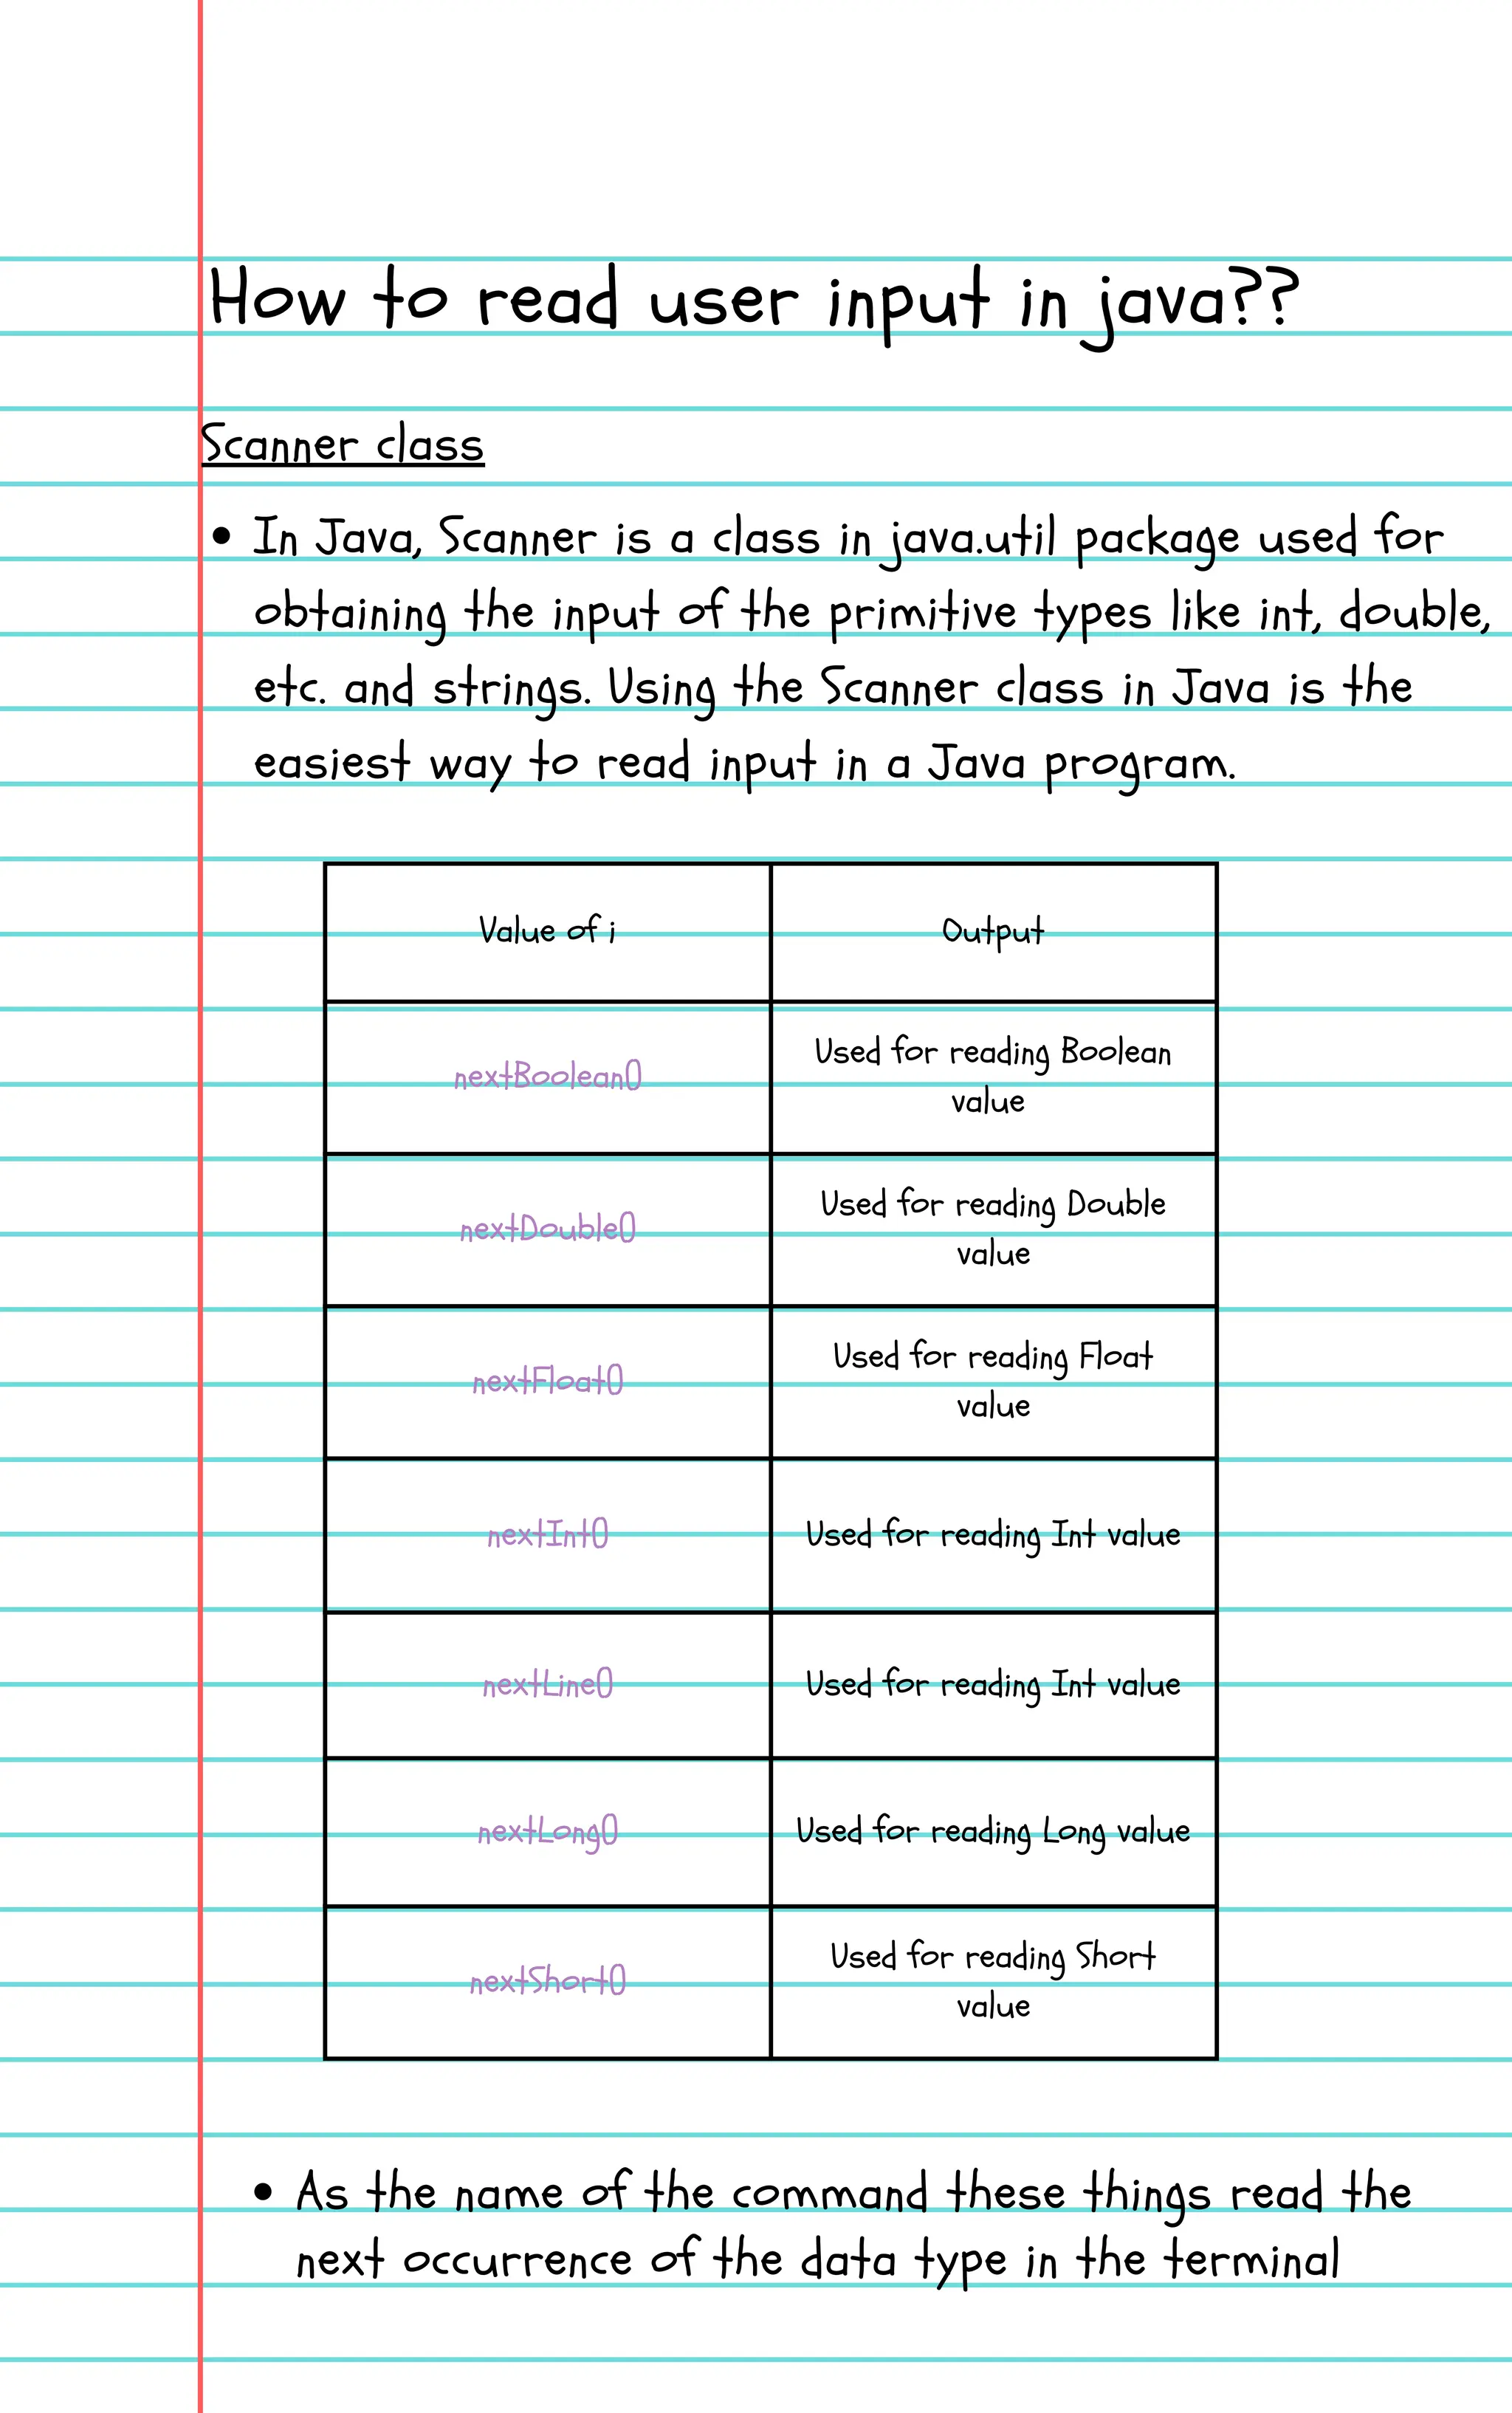 How to read user input in java??
Scanner class
• In Java, Scanner is a class in java.util package used for
obtaining the input of the primitive types like int, double,
etc. and strings. Using the Scanner class in Java is the
easiest way to read input in a Java program.
Value of i
Output
nextBoolean()
Used for reading Boolean
value
nextDouble()
Used for reading Double
value
nextFloat()
Used for reading Float
value
nextInt()
Used for reading Int value
nextLine()
Used for reading Int value
nextLong()
Used for reading Long value
nextShort()
Used for reading Short
value
• As the name of the command these things read the
next occurrence of the data type in the terminal